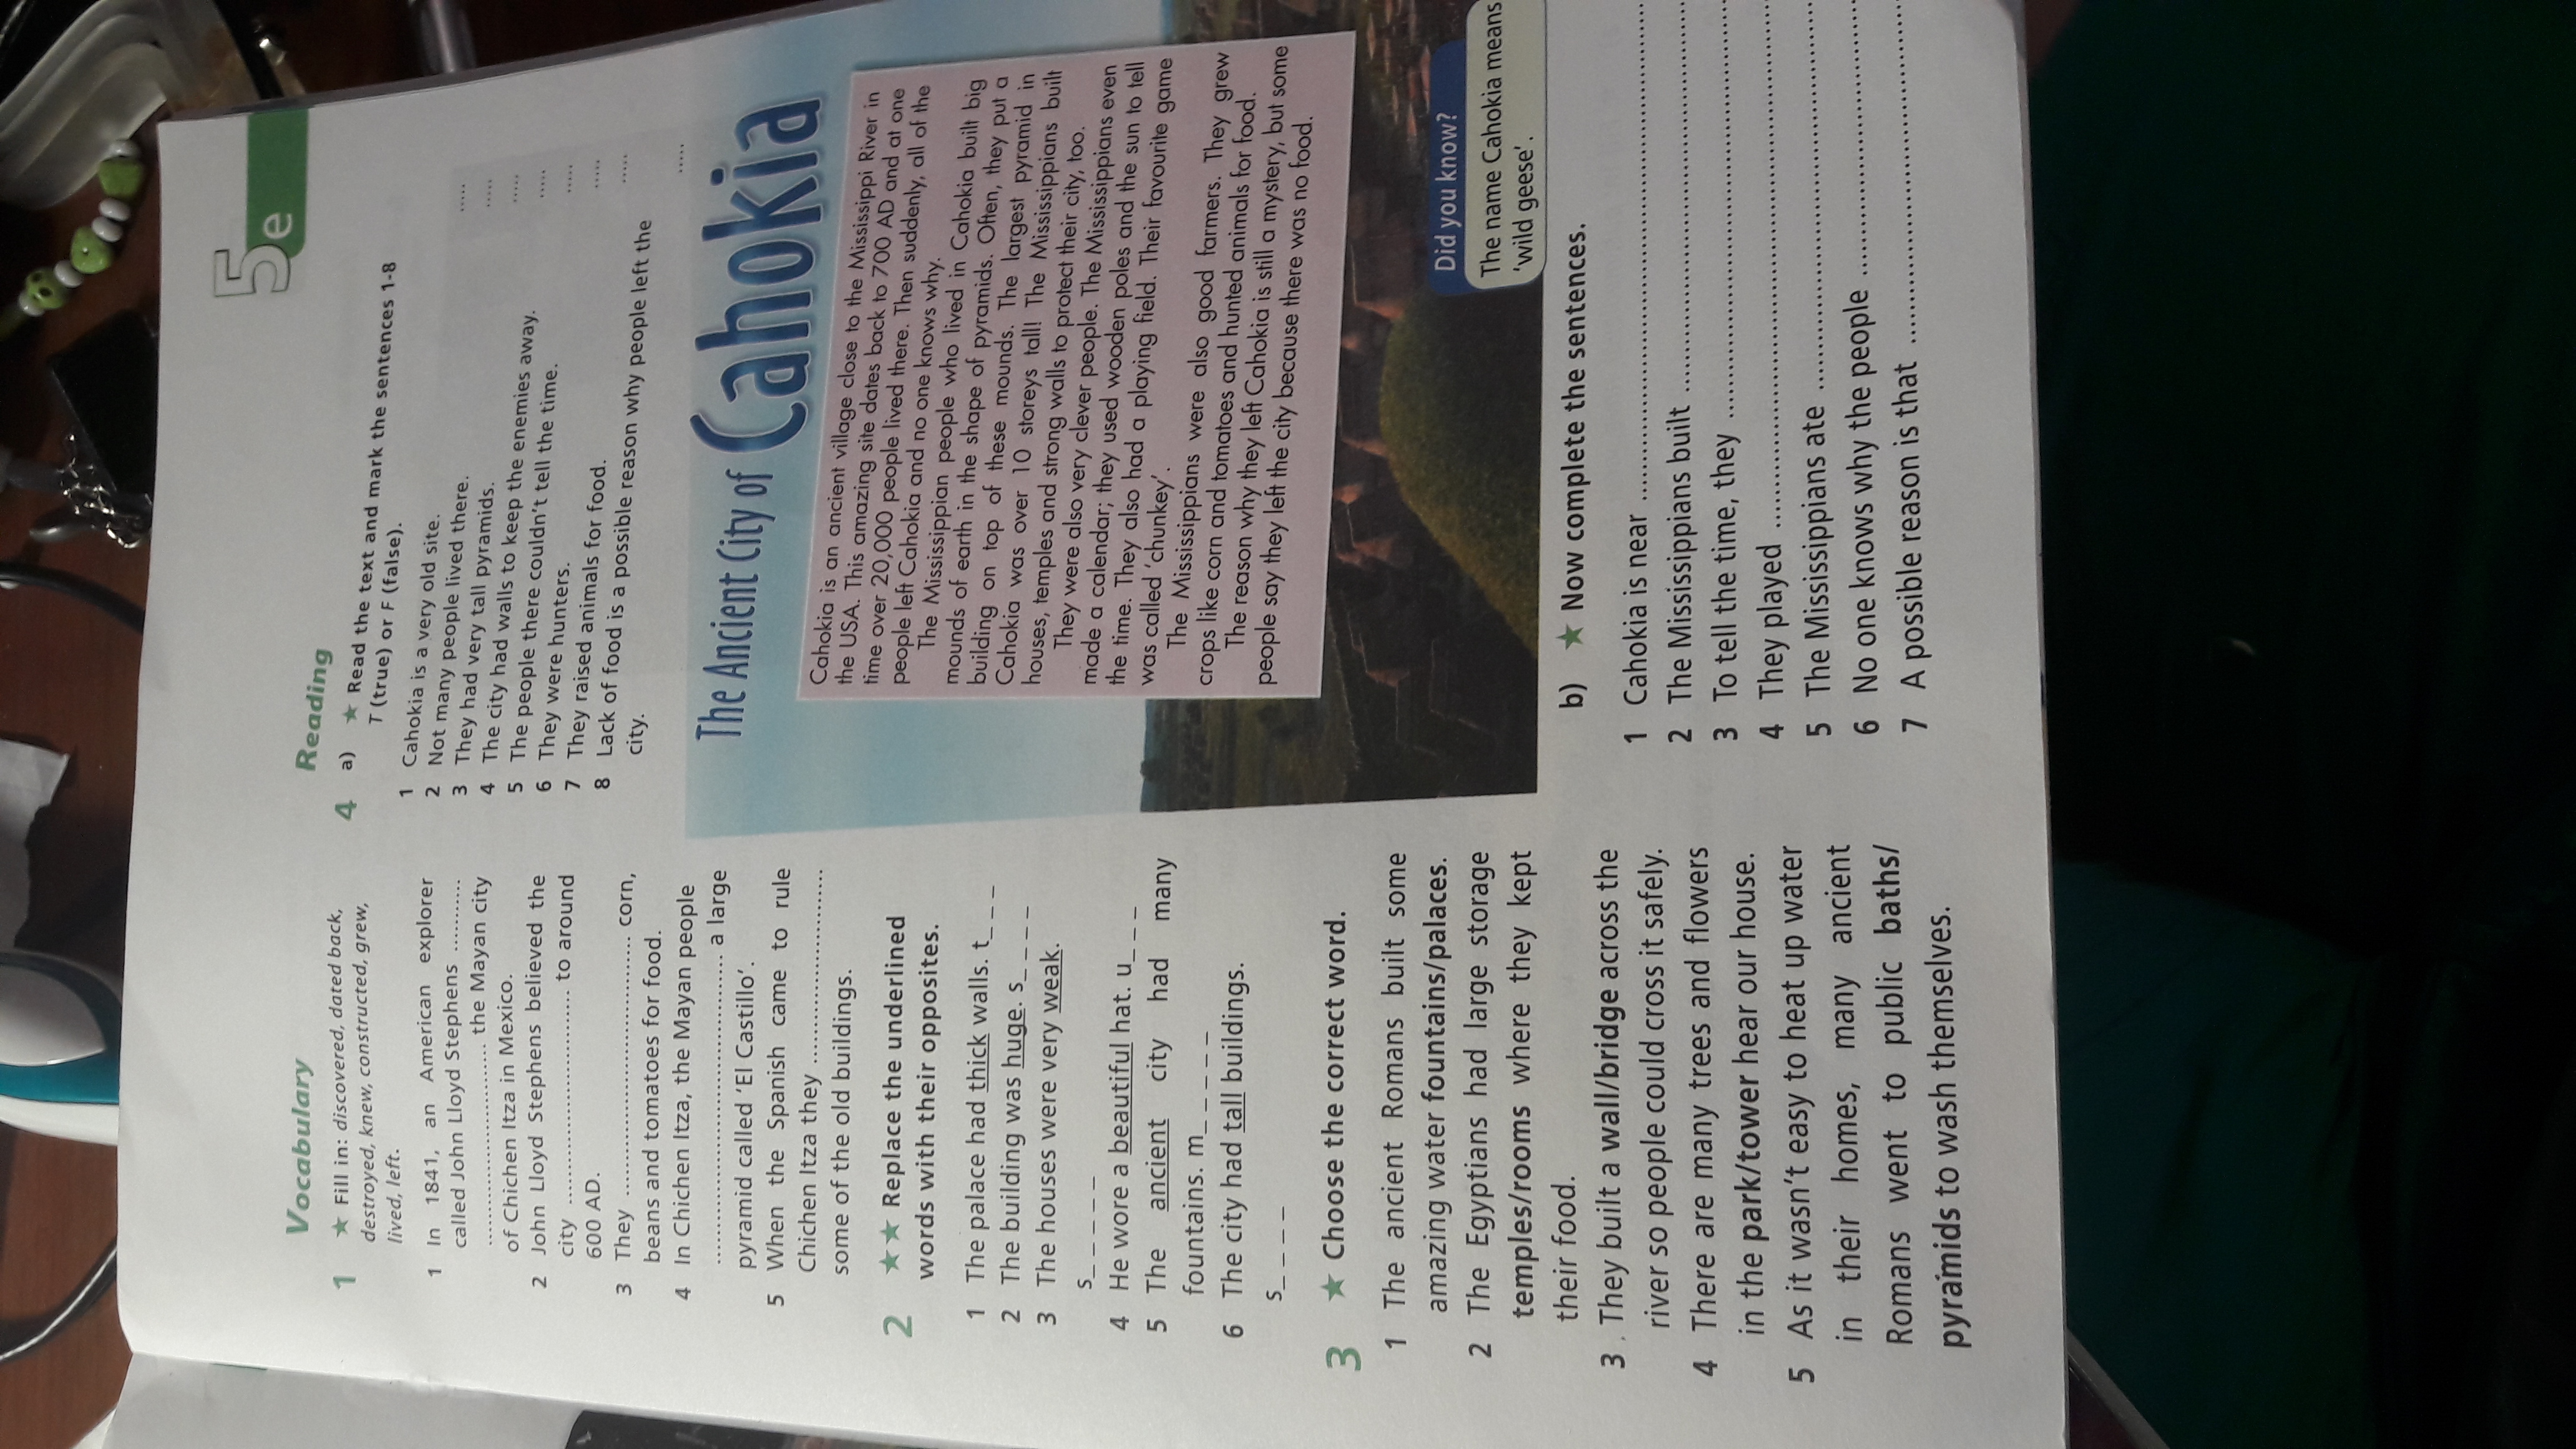 5e
Vocabulary
1 ★ Fill in: discovered, dated back,
destroyed, knew, constructed, grew,
lived, left.
1 In 1841, an American explorer
called John Lloyd Stephens ..........
.............................. the Mayan city
of Chichen Itza in Mexico.
2 John Lloyd Stephens believed the
city .............................. to around
600 AD.
3 They .............................. corn,
beans and tomatoes for food.
4 In Chichen Itza, the Mayan people
.............................. a large
pyramid called 'El Castillo'.
5 When the Spanish came to rule
Chichen Itza they ..............................
some of the old buildings.
2 ★★ Replace the underlined
words with their opposites.
1 The palace had thick walls. t_ _ _
2 The building was huge. s_ _ _ _
3 The houses were very weak.
s_ _ _ _ _
4 He wore a beautiful hat. u_ _ _
5 The ancient city had many
fountains. m_ _ _ _ _
6 The city had tall buildings.
s_ _ _ _
3 ★ Choose the correct word.
1 The ancient Romans built some
amazing water fountains/palaces.
2 The Egyptians had large storage
temples/rooms where they kept
their food.
3 They built a wall/bridge across the
river so people could cross it safely.
4 There are many trees and flowers
in the park/tower hear our house.
5 As it wasn't easy to heat up water
in their homes, many ancient
Romans went to public baths/
pyramids to wash themselves.
Reading
4 a) ★ Read the text and mark the sentences 1-8
T (true) or F (false).
1 Cahokia is a very old site. .....
2 Not many people lived there. .....
3 They had very tall pyramids. .....
4 The city had walls to keep the enemies away. .....
5 The people there couldn't tell the time. .....
6 They were hunters. .....
7 They raised animals for food. .....
8 Lack of food is a possible reason why people left the
city. .....
The Ancient City of Cahokia
Cahokia is an ancient village close to the Mississippi River in
the USA. This amazing site dates back to 700 AD and at one
time over 20,000 people lived there. Then suddenly, all of the
people left Cahokia and no one knows why.
The Mississippian people who lived in Cahokia built big
mounds of earth in the shape of pyramids. Often, they put a
building on top of these mounds. The largest pyramid in
Cahokia was over 10 storeys tall! The Mississippians built
houses, temples and strong walls to protect their city, too.
They were also very clever people. The Mississippians even
made a calendar; they used wooden poles and the sun to tell
the time. They also had a playing field. Their favourite game
was called 'chunkey'.
The Mississippians were also good farmers. They grew
crops like corn and tomatoes and hunted animals for food.
The reason why they left Cahokia is still a mystery, but some
people say they left the city because there was no food.
Did you know?
The name Cahokia means
'wild geese'.
b) ★ Now complete the sentences.
1 Cahokia is near ..............................
2 The Mississippians built ..............................
3 To tell the time, they ..............................
4 They played ..............................
5 The Mississippians ate ..............................
6 No one knows why the people ..............................
7 A possible reason is that ..............................